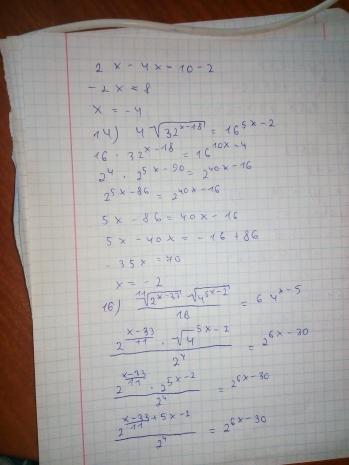 2x - 4x = 10 - 2
-2x = 8
x = -4
14) 4 √32^{x-18} = 16^{5x-2}
16 · 32^{x-18} = 16^{10x-4}
2^4 · 2^{5x-90} = 2^{40x-16}
2^{5x-86} = 2^{40x-16}
5x - 86 = 40x - 16
5x - 40x = -16 + 86
-35x = 70
x = -2
16) (\sqrt[11]{2^{x-33}} · √4^{5x-2}) / 16 = 64^{x-5}
(2^{(x-33)/11} · √4^{5x-2}) / 2^4 = 2^{6x-30}
(2^{(x-33)/11} · 2^{5x-2}) / 2^4 = 2^{6x-30}
2^{(x-33)/11 + 5x-2} / 2^4 = 2^{6x-30}